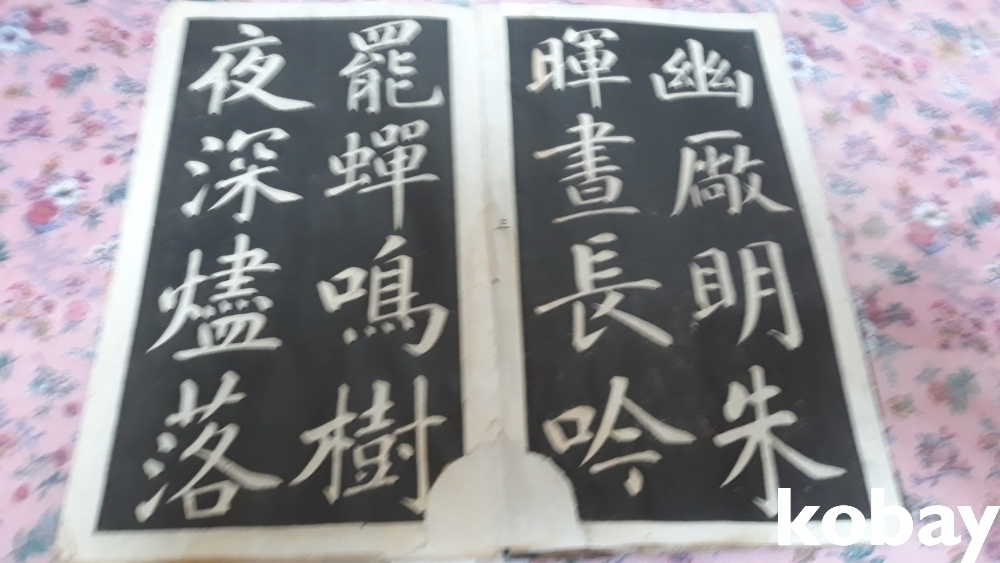 幽厰明朱
暉晝長吟
罷蟬鳴樹
夜深燼落
三
kobay